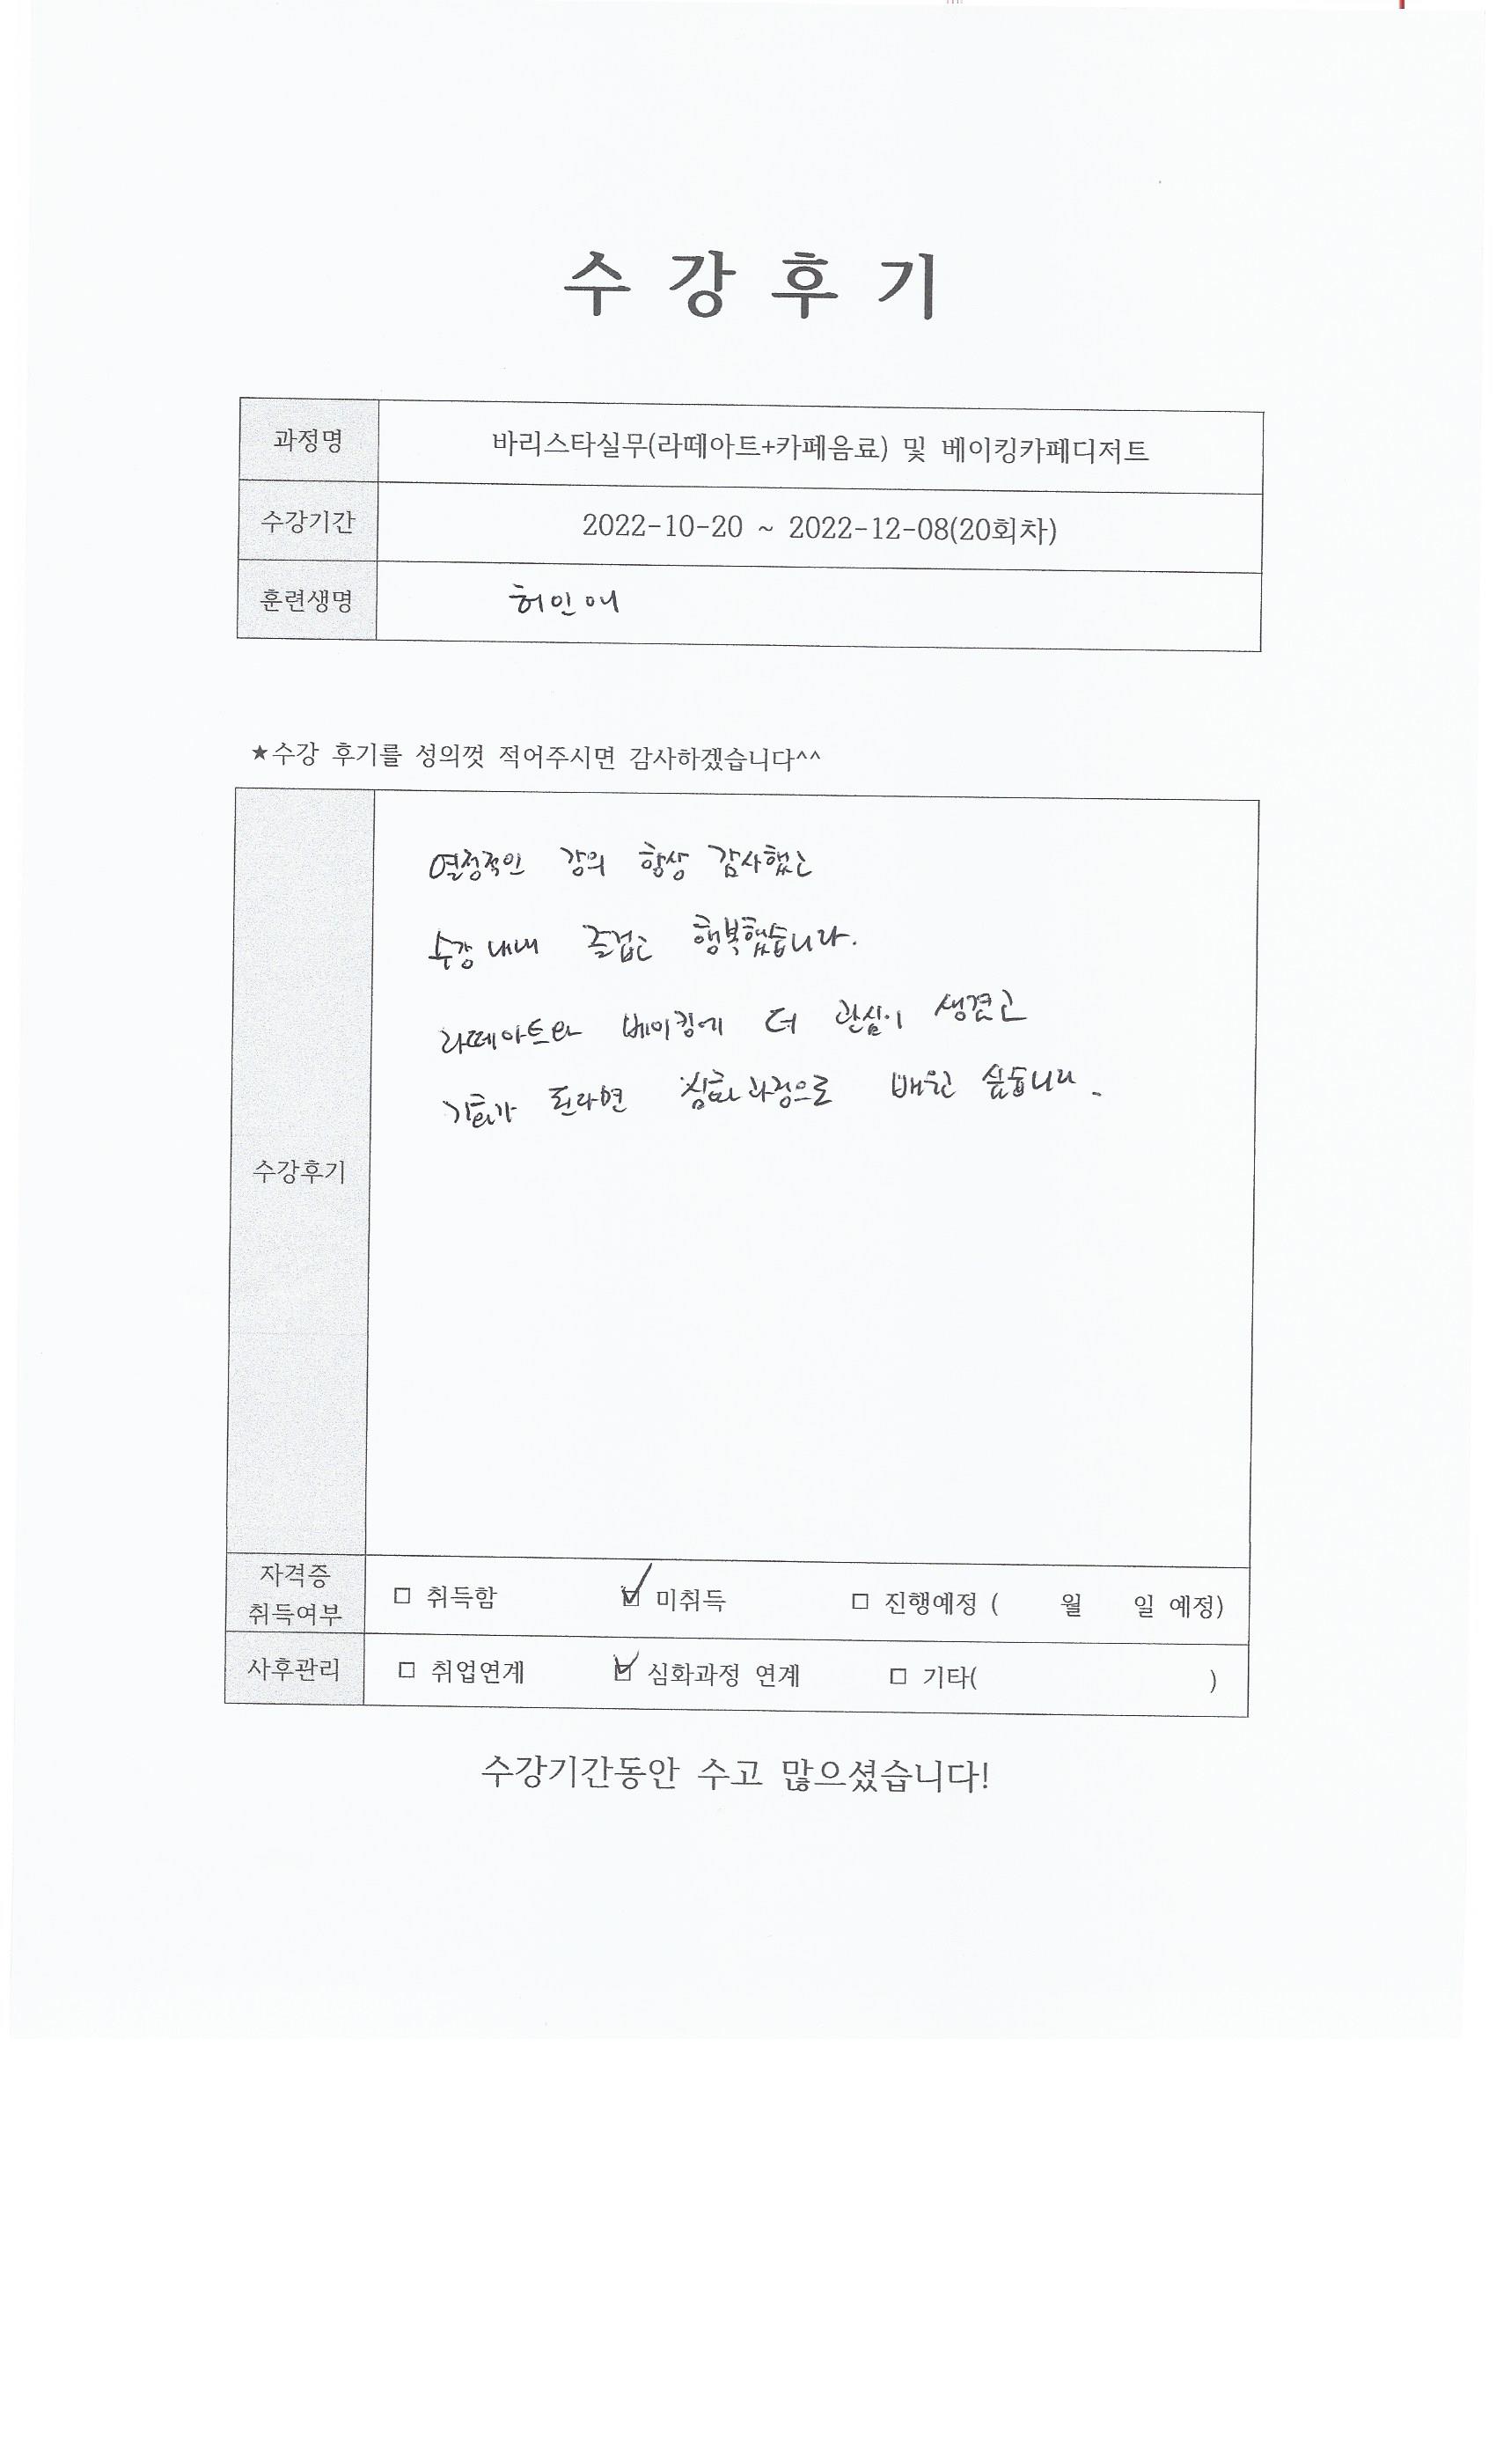 수 강 후 기
과정명 바리스타실무(라떼아트+카페음료) 및 베이킹카페디저트
수강기간 2022-10-20 ~ 2022-12-08(20회차)
훈련생명 허인애
★수강 후기를 성의껏 적어주시면 감사하겠습니다^^
열정적인 강의 항상 감사했고
수강 내내 즐겁고 행복했습니다.
라떼아트와 베이킹에 더 관심이 생겼고
기회가 된라면 심화과정으로 배우고 싶습니다.
수강후기
자격증
취득여부
□ 취득함 ☑ 미취득 □ 진행예정 ( 월 일 예정)
사후관리 □ 취업연계 ☑ 심화과정 연계 □ 기타( )
수강기간동안 수고 많으셨습니다!